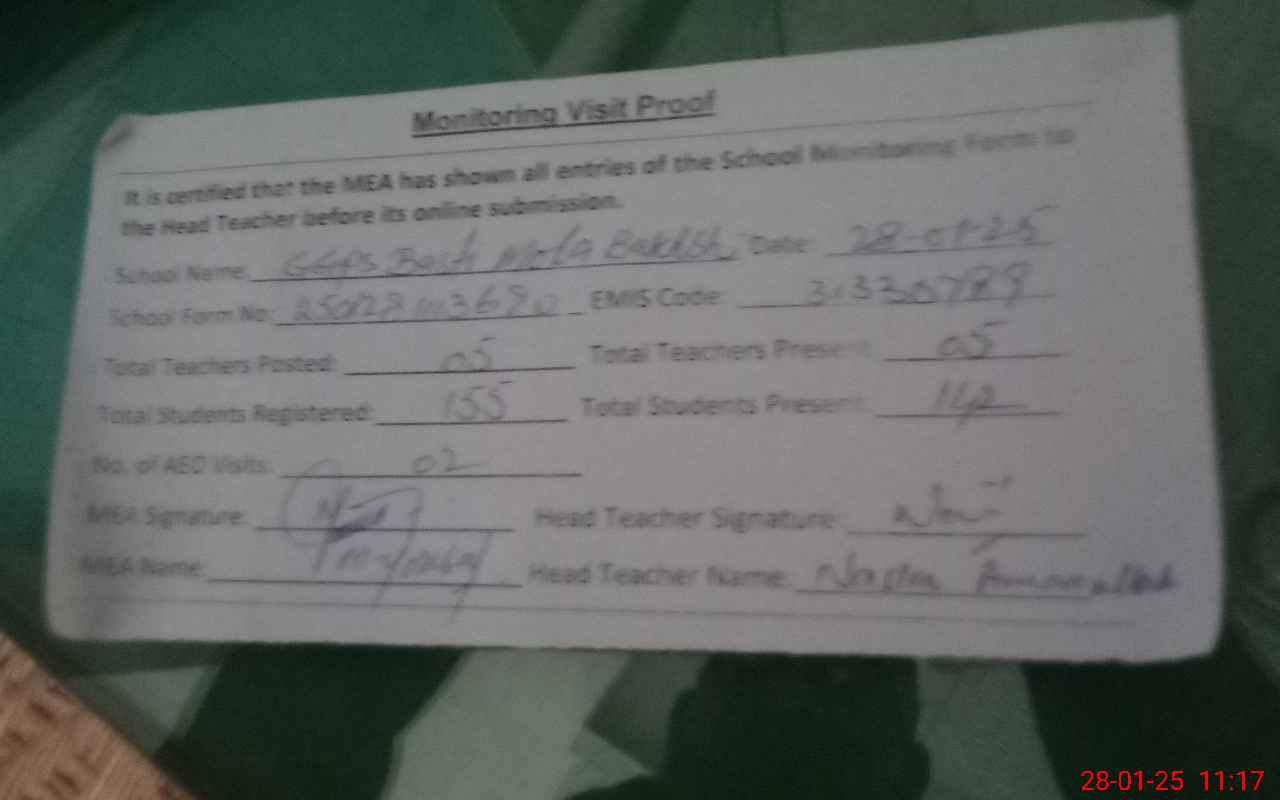 Monitoring Visit Proof
It is certified that the MEA has shown all entries of the School Monitoring Form to
the Head Teacher before its online submission.
School Name: GGPS Basti Mola Bakhsh Date: 28-01-25
School Form No: EMIS Code: 31330789
Total Teachers Posted: 05 Total Teachers Present: 05
Total Students Registered: 155 Total Students Present:
No. of AEO Visits: 02
MEA Signature: Head Teacher Signature:
MEA Name: Head Teacher Name:
28-01-25 11:17